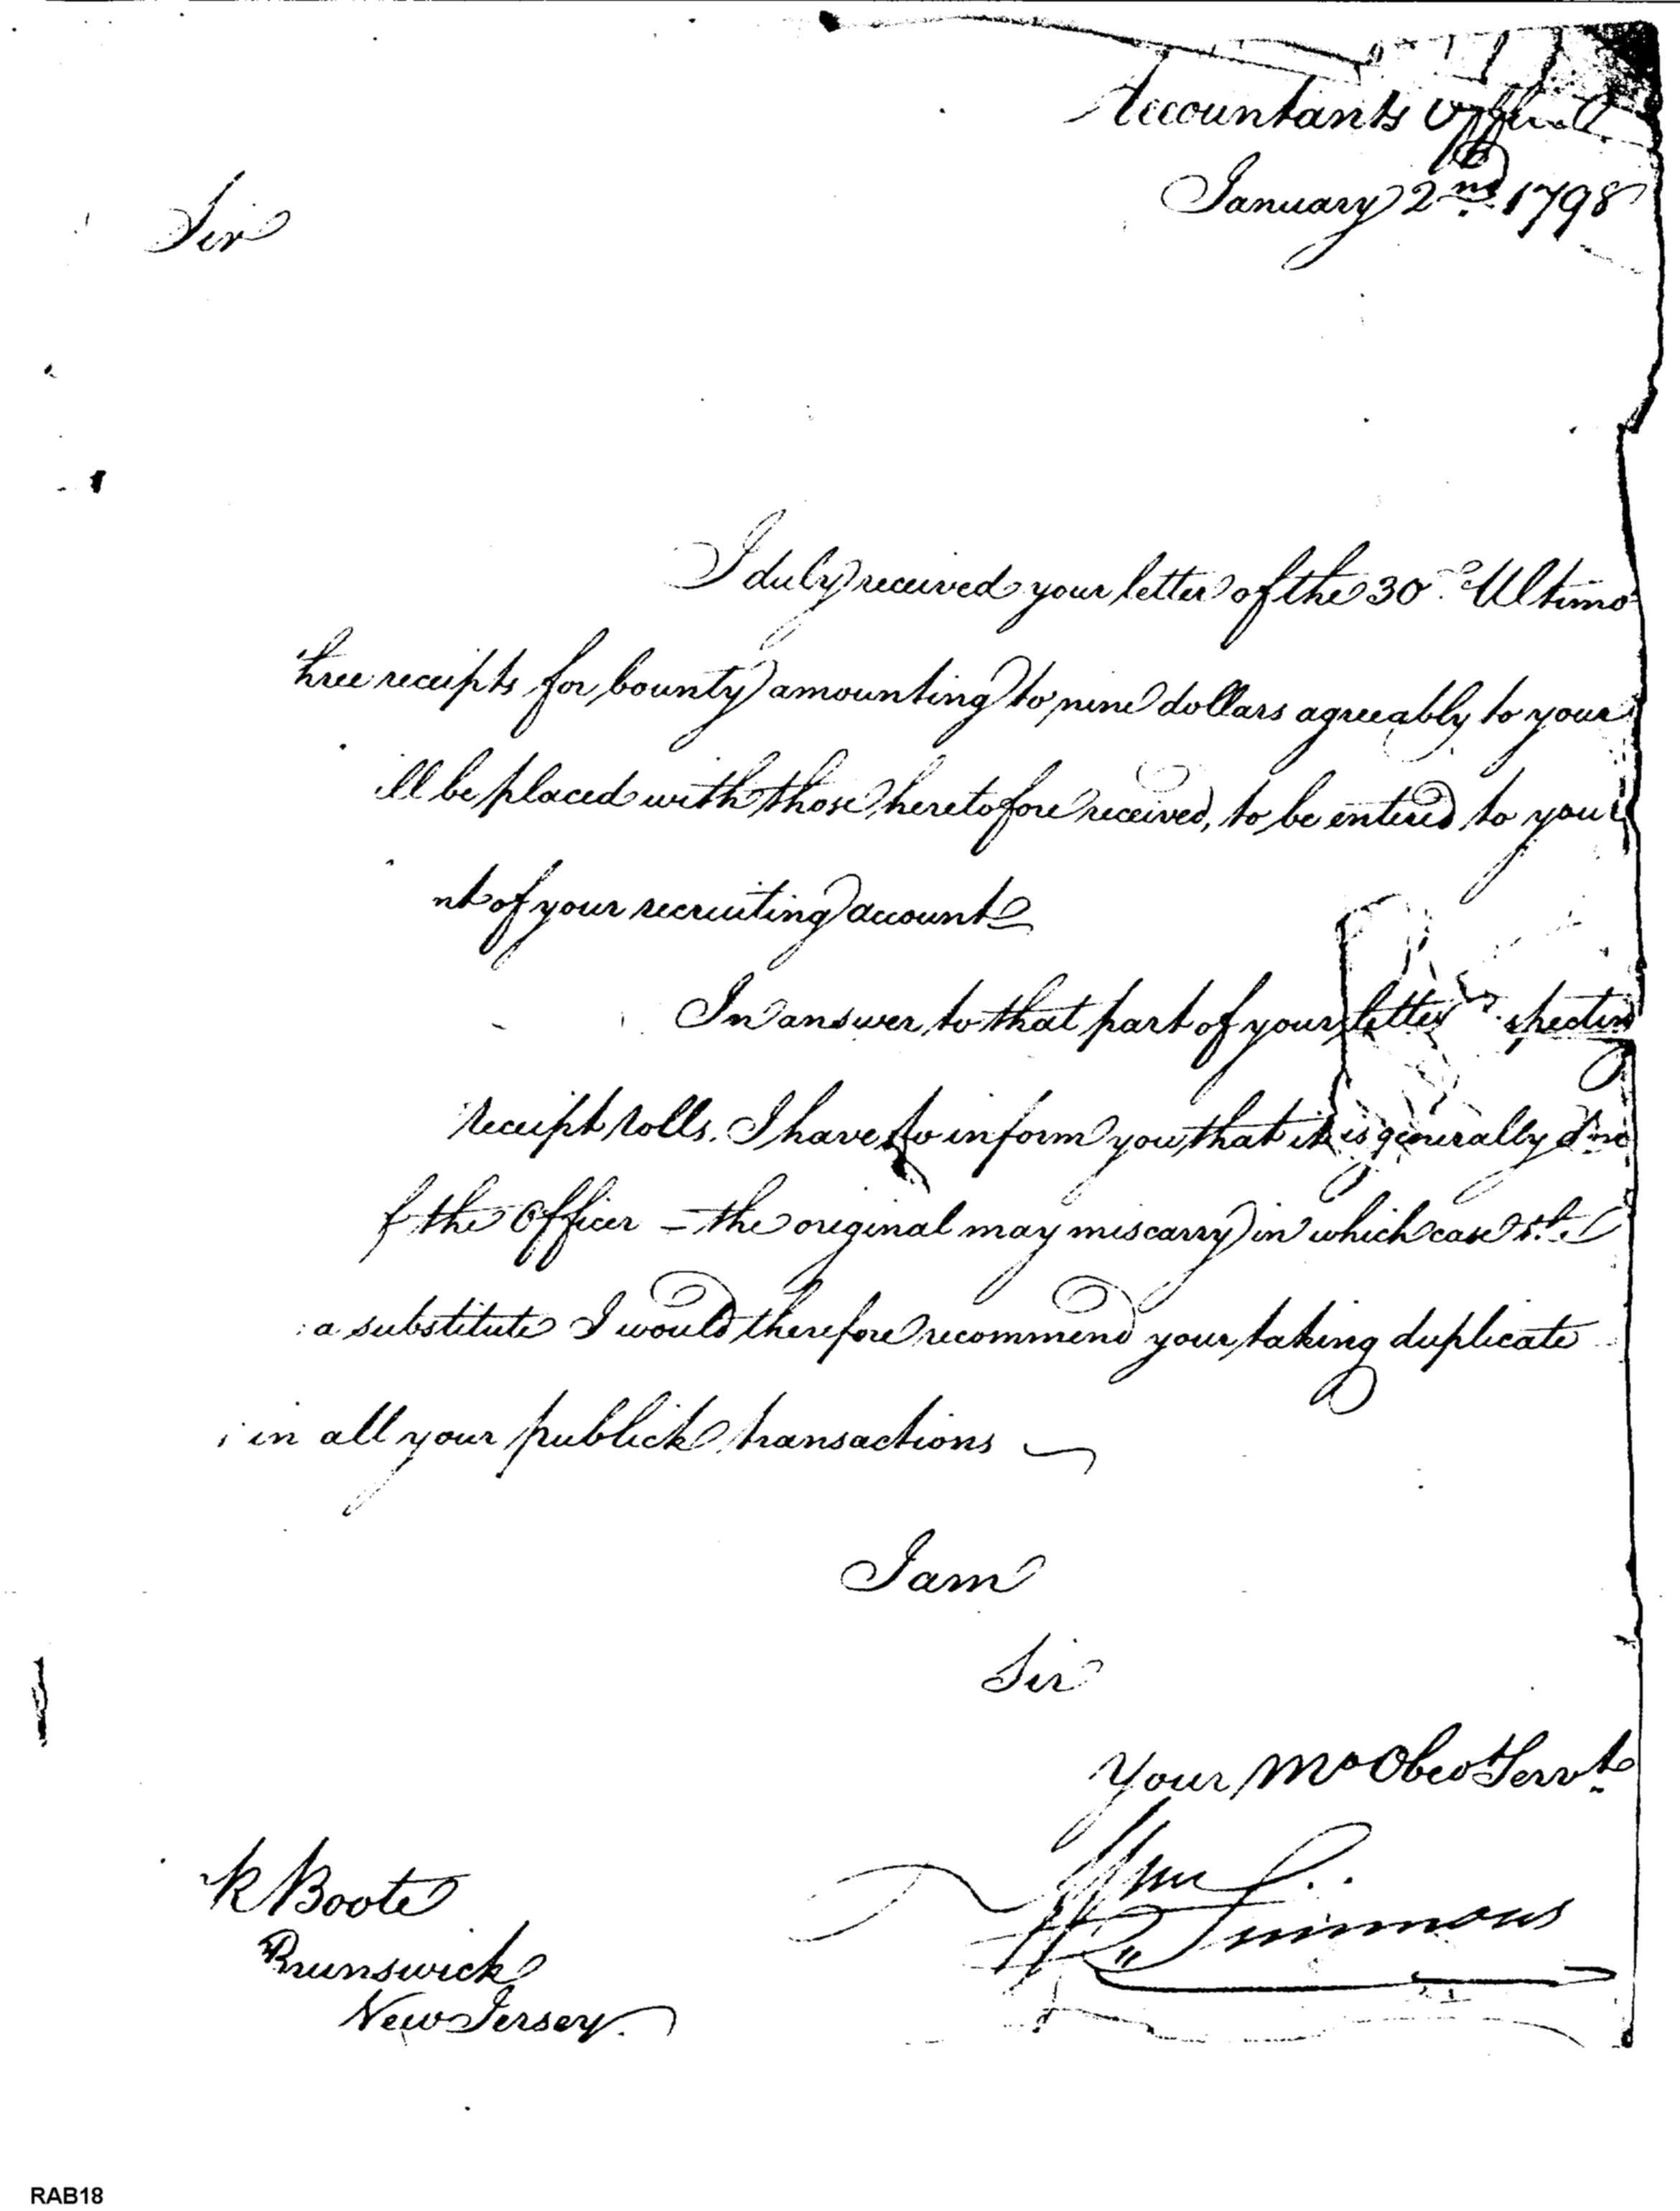 Accountants Office
January 2nd. 1798
Sir
I duly received your letter of the 30th. Ultimo
hree receipts for bounty amounting to nine dollars agreeably to your
ill be placed with those heretofore received, to be entered to your
nt of your recruiting account
In answer to that part of your letter specting
receipt rolls. I have to inform you that it is generally done
f the Officer = the original may miscarry in which case
a substitute I would therefore recommend your taking duplicate
in all your publick transactions
I am
Sir
Your Mo Obed Servt.
Wm Simmons
k Boote
Brunswick
New Jersey.
RAB18